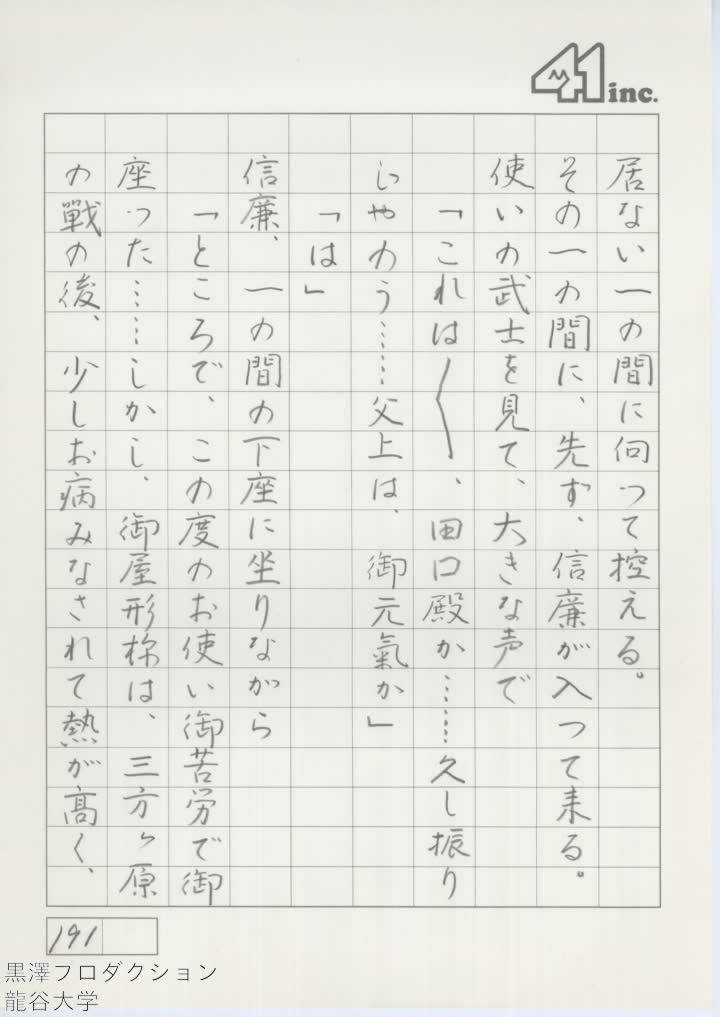 41 inc.
居ない一の間に向って控える。
その一の間に、先ず、信廉が入って来る。
使いの武士を見て、大きな声で
「これは〳〵、田口殿か……久し振り
じゃのう……父上は、御元氣か」
「は」
信廉、一の間の下座に坐りながら
「ところで、この度のお使い御苦労で御
座った……しかし、御屋形様は、三方ヶ原
の戰の後、少しお病みなされて熱が高く、
191
黒澤プロダクション
龍谷大学